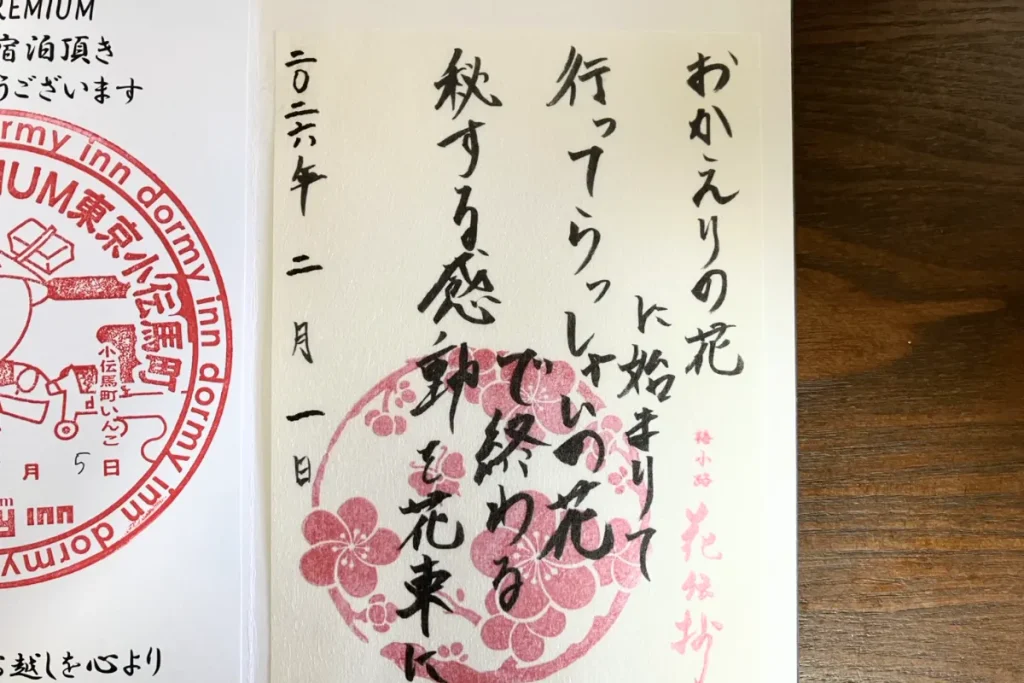 REMIUM
宿泊頂き
うございます
rmy inn dormy inn dormy inn dormy inn dormy
IUM東京小伝馬町
小伝馬町いんこ
月 5 日
INN
越しを心より
おかえりの花
に始まりて
行ってらっしゃいの花
で終わる
秘する感動を花束に
二〇二六年 二月 一日
梅小路 花伝抄